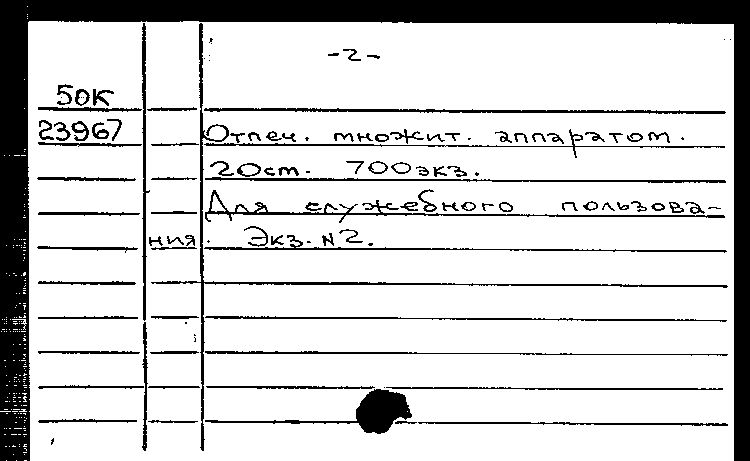 -2-
50К
23967 Отпеч. множит. аппаратом.
20ст. 700экз.
Для служебного пользова-
ния. Экз. N2.